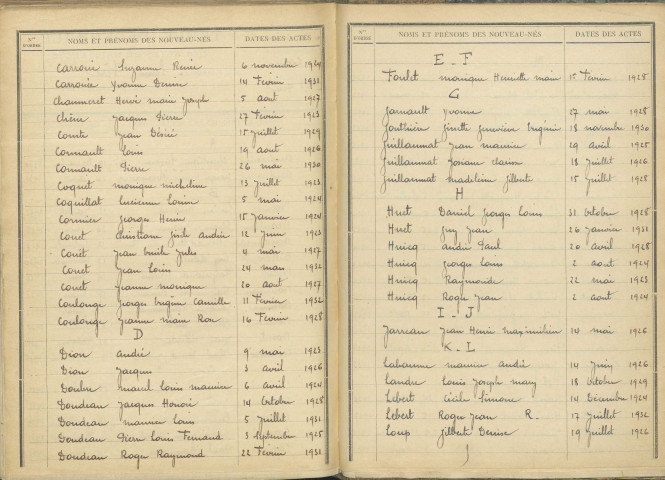 Nos D'ORDRE NOMS ET PRÉNOMS DES NOUVEAU-NÉS DATES DES ACTES
Carroué Suzanne Renée 6 novembre 1924
Carrouée Yvonne Denise 14 Février 1931
Chaumeret Hervé marie Joseph 5 aout 1927
Chêne Jacques Pierre 27 Février 1923
Comte Jean Désiré 15 Juillet 1929
Cormault Louis 19 aout 1926
Cormault Pierre 26 mai 1930
Coquet monique micheline 13 Juillet 1923
Coquillat Lucienne Louise 5 mai 1924
Cormier Georges Henri 15 Janvier 1924
Couet Christiane Gisèle Andrée 12 Juin 1923
Couet Jean Emile Jules 4 mai 1927
Couet Jean Louis 24 mars 1932
Couet Jeanne monique 20 aout 1927
Coulonge Georges Eugène Camille 11 Février 1932
Coulonge Jeanne marie Rose 16 Février 1928
D
Dion André 9 mai 1923
Dion Jacques 3 avril 1926
Doubre marcel Louis maurice 6 avril 1924
Doudeau Jacques Honoré 14 Octobre 1928
Doudeau maurice Louis 5 Juillet 1931
Doudeau Pierre Louis Fernand 3 Septembre 1925
Doudeau Roger Raymond 22 Février 1931
Nos D'ORDRE NOMS ET PRÉNOMS DES NOUVEAU-NÉS DATES DES ACTES
E - F
Foulet monique Henriette marie 15 Février 1928
G
Garnault Yvonne 27 mai 1928
Gauthier Ginette Geneviève Eugénie 18 novembre 1930
Guillaumat Jean maurice 29 avril 1925
Guillaumat Josiane 18 Juillet 1926
Guillaumat madeleine Gilberte 15 Juillet 1928
H
Huet Daniel Georges Louis 31 Octobre 1928
Huet Guy Jean 26 Janvier 1931
Hucq André Paul 20 avril 1928
Hucq Georges Louis 2 aout 1924
Hucq Raymonde 22 mai 1923
Hucq Roger Jean 2 aout 1924
I - J
Jarreau Jean Henri maximilien 14 mai 1926
K - L
Labanne maurice André 14 Juin 1926
Landre Louis Joseph mary 18 Octobre 1929
Lebert Cécile Simone 14 Décembre 1924
Lebert Roger Jean R. 17 Juillet 1932
Loup Gilberte Denise 19 Juillet 1926